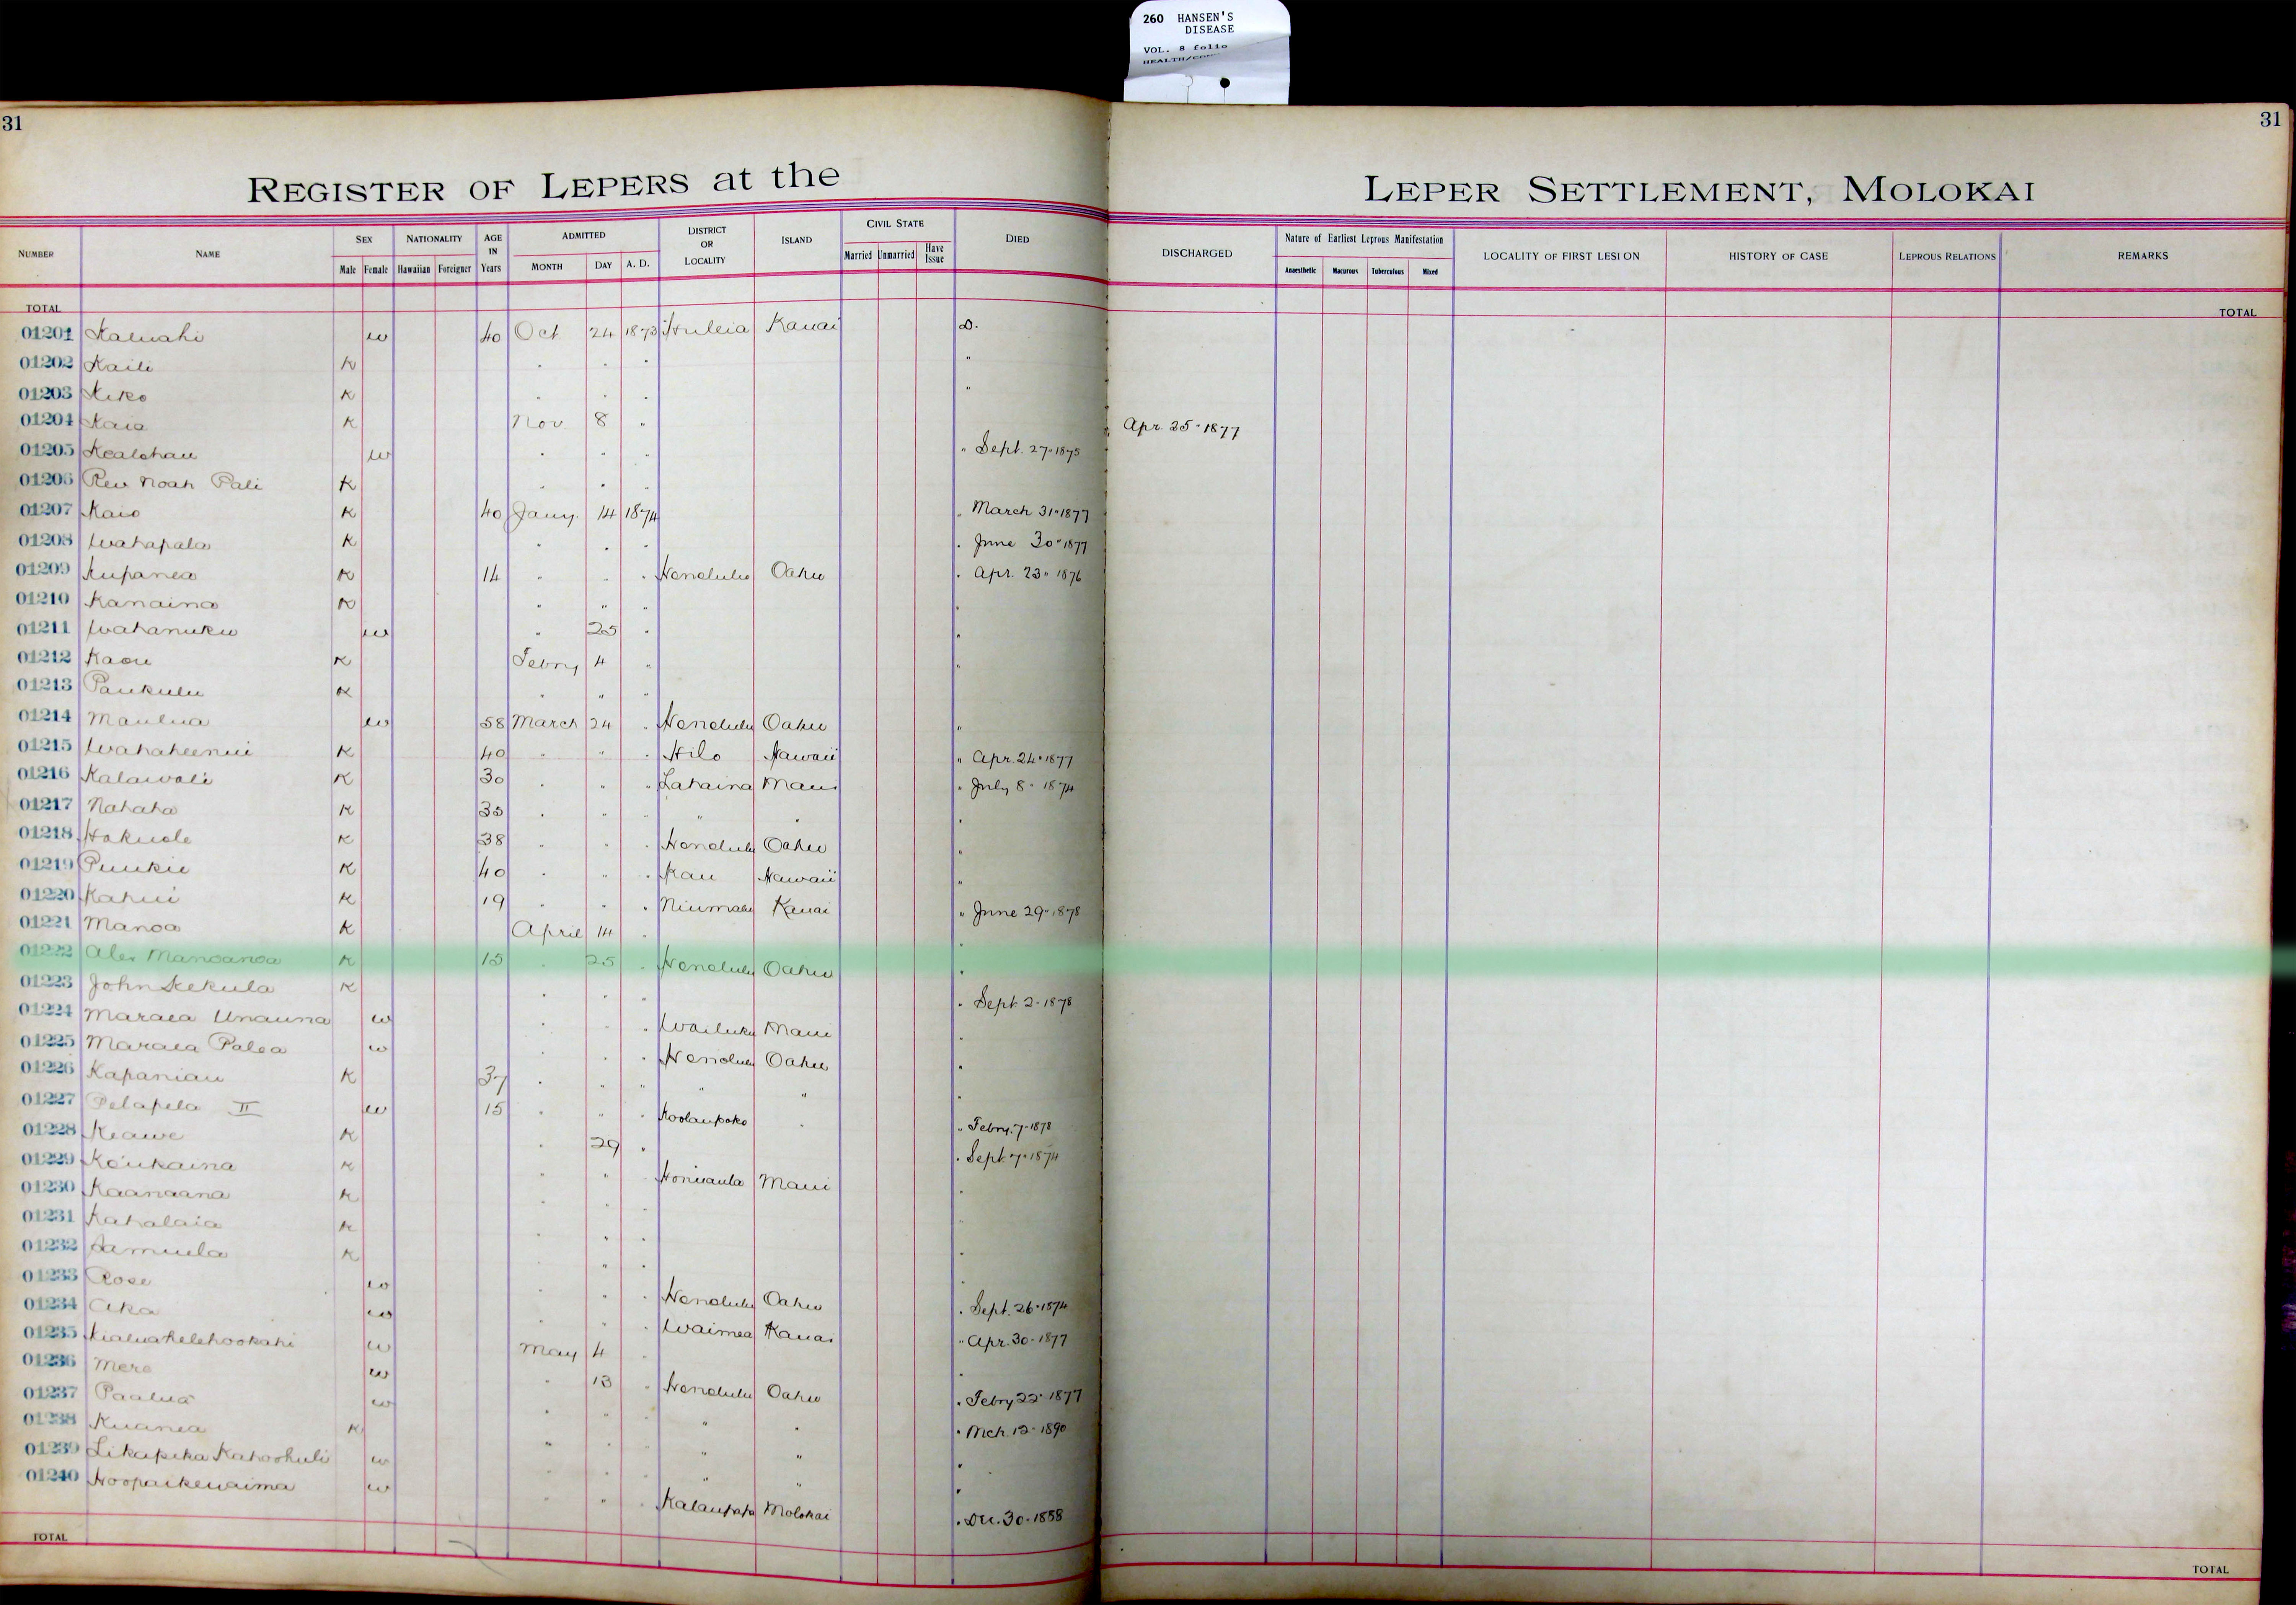 260 HANSEN'S
DISEASE
VOL. 8 folio
31
31
REGISTER OF LEPERS at the LEPER SETTLEMENT, MOLOKAI
NUMBER NAME SEX Male Female NATIONALITY Hawaiian Foreigner AGE IN Years ADMITTED MONTH DAY A. D. DISTRICT OR LOCALITY ISLAND CIVIL STATE Married Unmarried Have Issue DIED DISCHARGED Nature of Earliest Leprous Manifestation Anaesthetic Macurous Tuberculous Mixed LOCALITY OF FIRST LESION HISTORY OF CASE LEPROUS RELATIONS REMARKS
TOTAL TOTAL
01201 Kaluahi w 40 Oct 24 1873 Huleia Kauai D.
01202 Kaili K " " " "
01203 Kiko K " " " "
01204 Kaia K Nov. 8 " " Apr. 25" 1877
01205 Kealohau w " " " " Sept. 27" 1875
01206 Rev Noah Pali K " " "
01207 Kaio K 40 Jany. 14 1874 " March 31" 1877
01208 Wahapala K " " " " June 30" 1877
01209 Kupanea K 14 " " " Honolulu Oahu " Apr. 23" 1876
01210 Kanaina K " " " "
01211 Wahanuku w " 25 " "
01212 Kaou K Febry 4 " "
01213 Paukulu K " " "
01214 Maulua w 58 March 24 " Honolulu Oahu "
01215 Wahaheenui K 40 " " " Hilo Hawaii " Apr. 24" 1877
01216 Kalawali K 30 " " " Lahaina Maui " July 8" 1874
01217 Nahaha K 35 " " " " " "
01218 Hokuole K 38 " " " Honolulu Oahu "
01219 Puukii K 40 " " " Kau Hawaii "
01220 Kahui K 19 " " " Niumalu Kauai " June 29" 1878
01221 Manoa K April 14 " "
01222 Alex Manoanoa K 15 " 25 " Honolulu Oahu "
01223 John Kekula K " " " " Sept. 2" 1878
01224 Maraea Unauna w " " " Wailuku Maui "
01225 Maraea Palea w " " " Honolulu Oahu "
01226 Kapaniau K 37 " " " " " "
01227 Pelapela II w 15 " " " Koolaupoko " " Febry. 7" 1878
01228 Keawe K " 29 " " Sept. 7" 1874
01229 Keukaina K " " " Honuaula Maui "
01230 Kaanaana K " " "
01231 Kahalaia K " " " "
01232 Samuela K " " "
01233 Rose w " " " Honolulu Oahu " Sept. 26" 1874
01234 Aka w " " " Waimea Kauai " Apr. 30" 1877
01235 Kialuahelehookahi w May 4 " "
01236 Mere w " 13 " Honolulu Oahu " Febry 22" 1877
01237 Paalua w " " " " " " Mch. 12" 1890
01238 Kuanea K " " " " "
01239 Likapeka Kahoohuli w " " " " " "
01240 Hoopaikewaima w " " " Kalaupapa Molokai " Dec. 30" 1888
TOTAL TOTAL